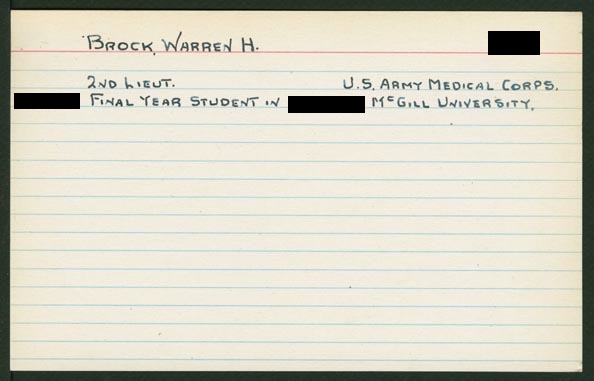 BROCK, WARREN H.
2ND LIEUT. U.S. ARMY MEDICAL CORPS.
FINAL YEAR STUDENT IN MCGILL UNIVERSITY.